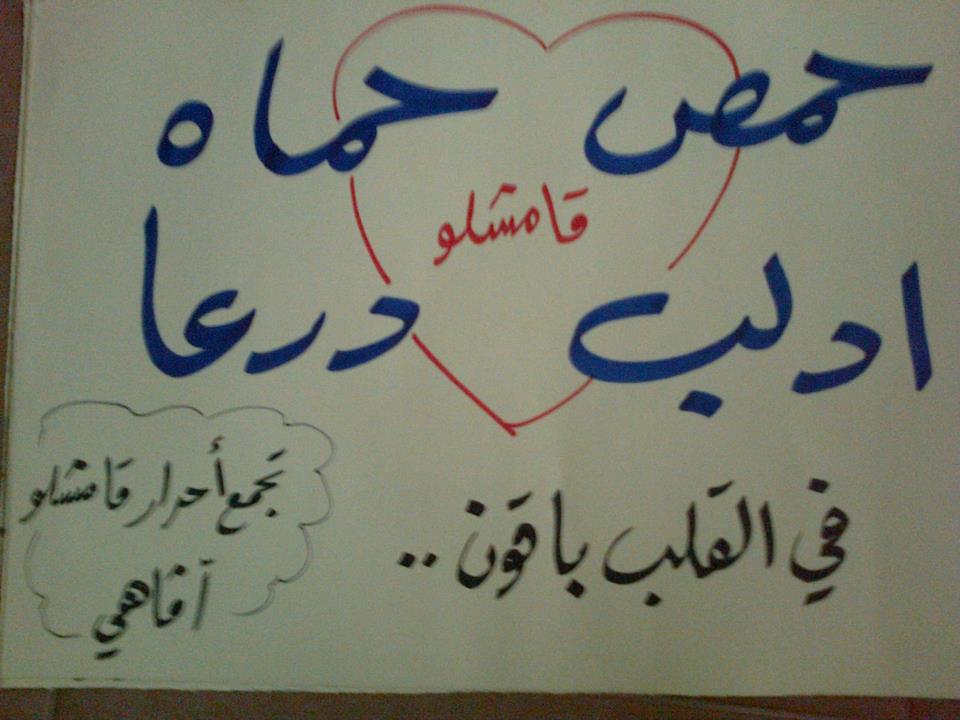 حمص حماه
قامشلو
ادلب درعا
في القلب باقون ..
تجمع أحرار قامشلو
آفاهي